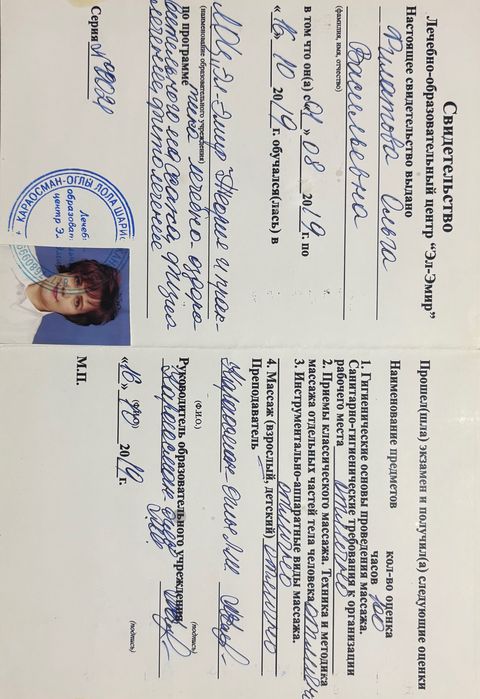 Свидетельство
Лечебно-образовательный центр “Эл-Эмир”
Настоящее свидетельство выдано
Филатова Ольга
Васильевна
(фамилия, имя, отчество)
в том что он(а) с «01» 08 2019 г. по
«18» 10 2019 г. обучался(лась) в
ЛОЦ „Эл-Эмир"
(наименование образовательного учреждения)
по программе
Серия № 4034
КАРАОСМАН-ОГЛЫ ЛОЛА
Лечебно
образоват
центр Э
Прошел(шла) экзамен и получил(а) следующие оценки
Наименование предметов кол-во оценка
часов
1. Гигиенические основы проведения массажа.
Санитарно-гигиенические требования к организации
рабочего места отлично
2. Приемы классического массажа. Техника и методика
массажа отдельных частей тела человека отлично
3. Инструментально-аппаратные виды массажа.
отлично
4. Массаж (взрослый, детский) отлично
Преподаватель
Караосман-Оглы Л.Ш.
(Ф.И.О.) (подпись)
Руководитель образовательного учреждения
Караосман
(Ф.И.О.) (подпись)
«18» 10 2019 г.
М.П.